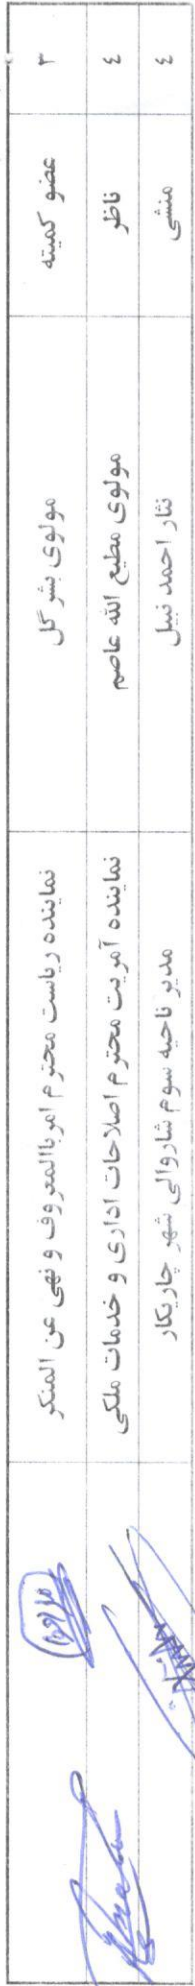 ۳ عضو کمیته مولوی بشر گل نماینده ریاست محترم امر باالمعروف و نهی عن المنکر
٤ ناظر مولوی مطیع الله عاصم نماینده آمریت محترم اصلاحات اداری و خدمات ملکی
٤ منشی نثار احمد نبیل مدیر ناحیه سوم شاروالی شهر چاریکار